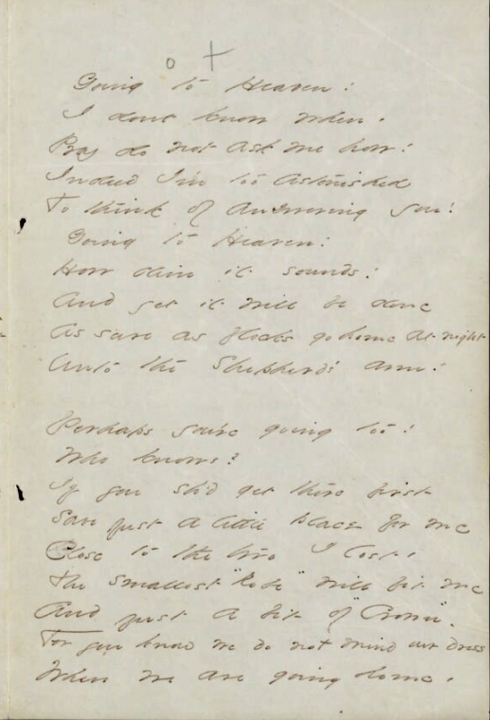 o +
Going to Heaven!
I dont know when.
Pray do not ask me how!
Indeed I'm too astonished
To think of answering you!
Going to Heaven!
How dim it sounds!
And yet it will be done
As sure as flocks go home at night
Unto the Shepherd's arm!
Perhaps you're going too!
Who knows?
If you sh'd get there first
Save just a little place for me
Close to the two I lost!
The smallest "Robe" will fit me
And just a bit of "Crown".
For you know we do not mind our dress
When we are going home.